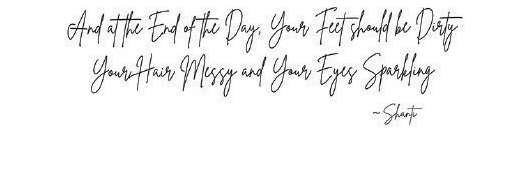 And at the End of the Day, Your Feet should be Dirty
Your Hair Messy and Your Eyes Sparkling
~Shanti